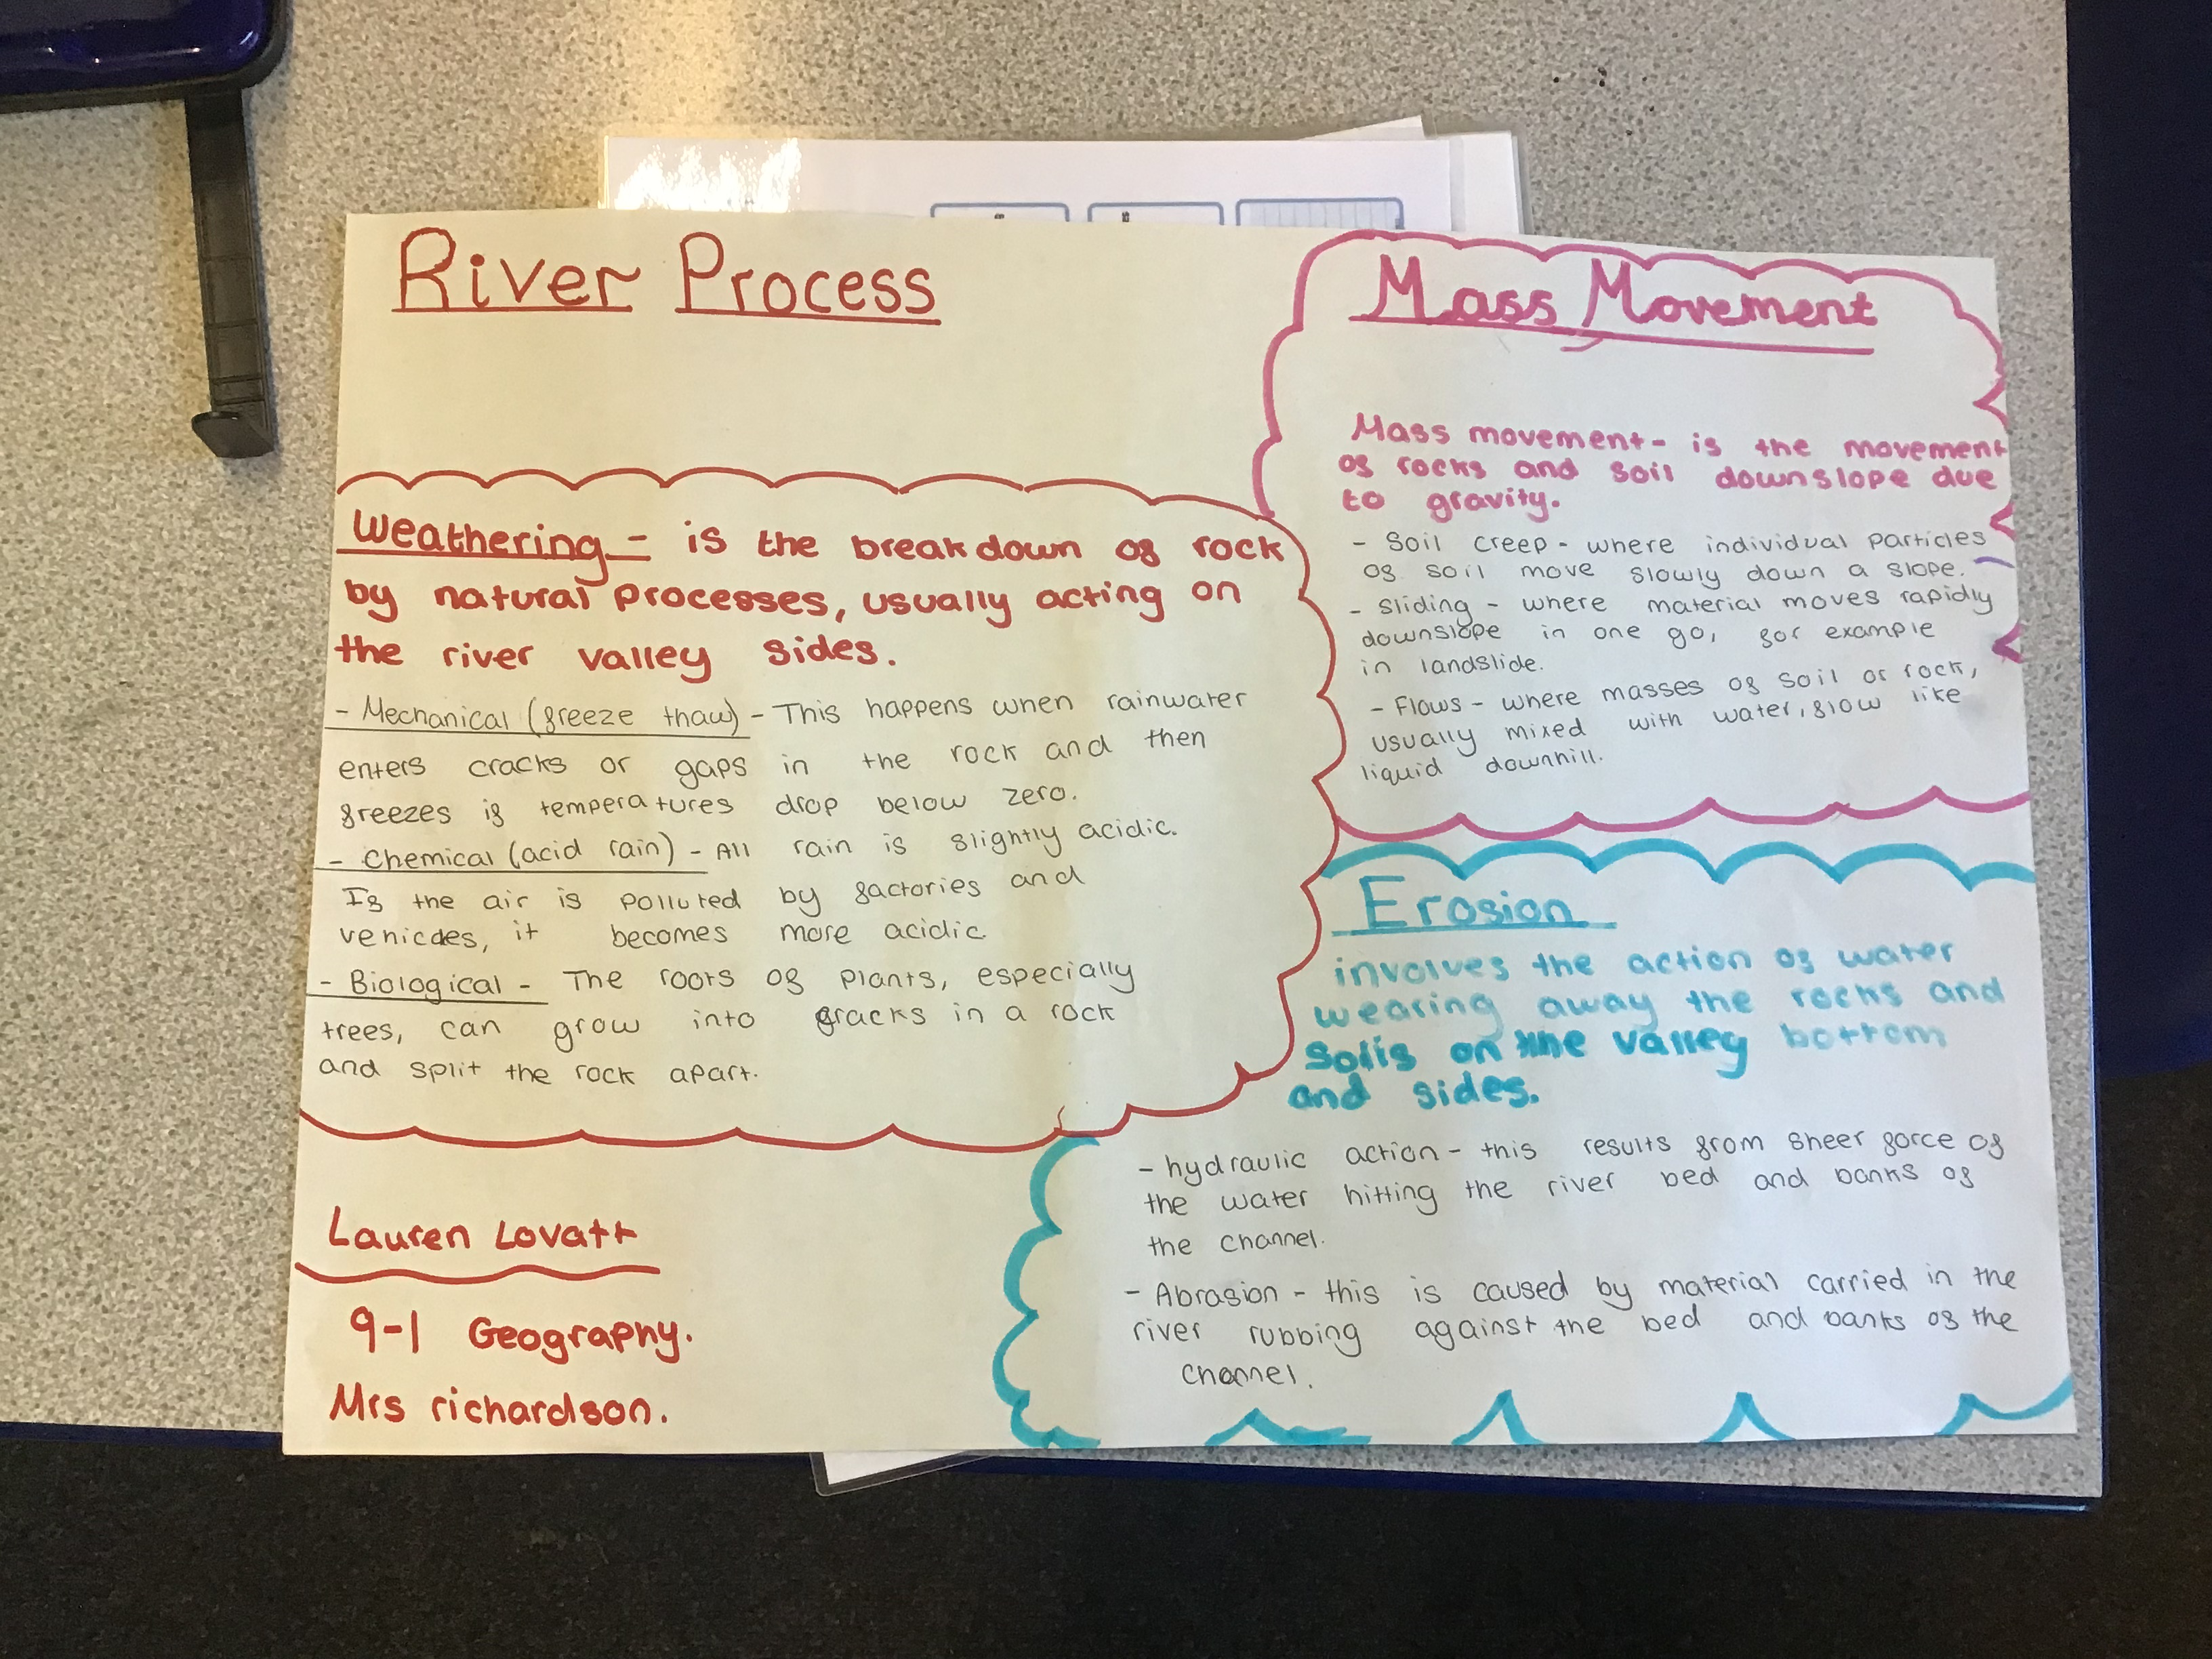 River Process
Weathering - is the breakdown of rock
by natural processes, usually acting on
the river valley sides.
- Mechanical (freeze thaw) - This happens when rainwater
enters cracks or gaps in the rock and then
freezes if temperatures drop below zero.
- Chemical (acid rain) - All rain is slightly acidic.
If the air is polluted by factories and
vehicles, it becomes more acidic
- Biological - The roots of plants, especially
trees, can grow into cracks in a rock
and split the rock apart.
Lauren Lovatt
9-1 Geography.
Mrs richardson.
Mass Movement
Mass movement - is the movement
of rocks and soil downslope due
to gravity.
- Soil creep - where individual particles
of soil move slowly down a slope.
- Sliding - where material moves rapidly
downslope in one go, for example
in landslide.
- Flows - where masses of soil or rock,
usually mixed with water, flow like
liquid downhill.
Erosion
involves the action of water
wearing away the rocks and
Solis on the valley bottom
and sides.
- hydraulic action - this results from sheer force of
the water hitting the river bed and banks of
the channel.
- Abrasion - this is caused by material carried in the
river rubbing against the bed and banks of the
channel.